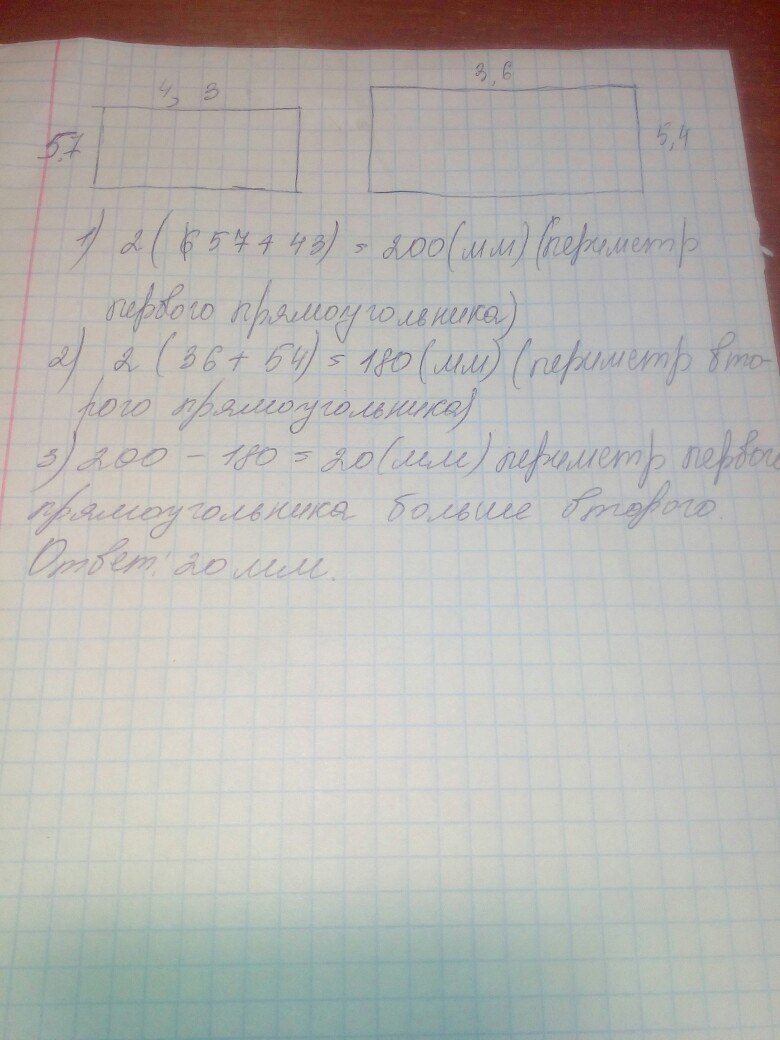 4, 3
3,6
5,7
5,4
1) 2 ( 57 + 43) = 200 (мм) (периметр
первого прямоугольника)
2) 2 (36 + 54) = 180 (мм) (периметр вто-
рого прямоугольника)
3) 200 - 180 = 20 (мм) периметр первого
прямоугольника больше второго.
Ответ: 20 мм.